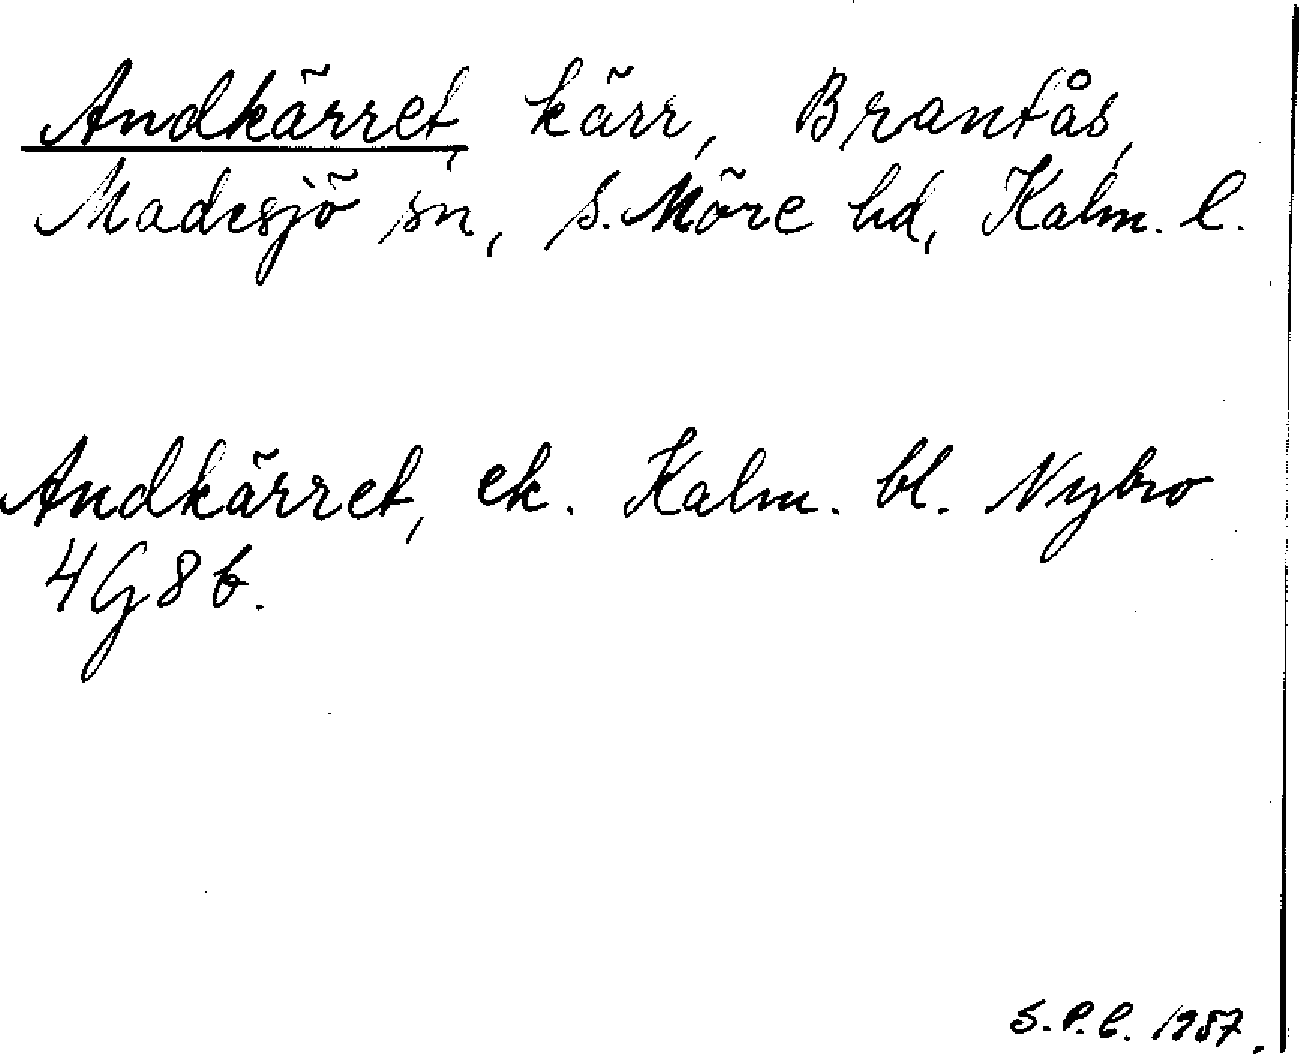 Andkärret, kärr, Brantås,
Madesjö sn, S. Möre hd, Kalm. l.
Andkärret, ek. Kalm. bl. Nybro
4G8b.
S.P.C. 1957.